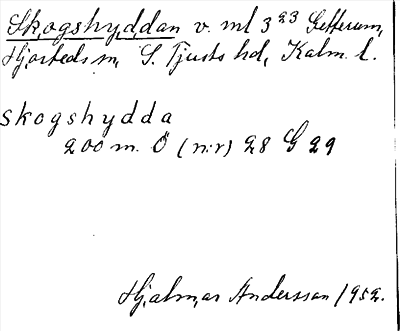 Skogshyddan v. ml 3²²³ Getterum,
Hjorteds sn, S. Tjusts hd, Kalm. l.
skogshydda
200 m. Ö (nr) 28 G 29
Hjalmar Andersson 1952.